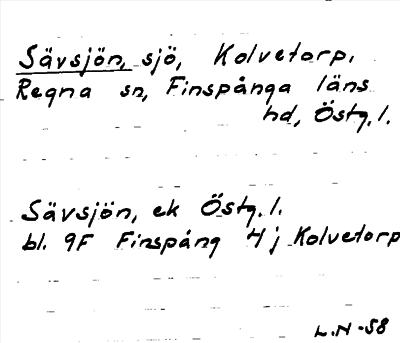 Sävsjön, sjö, Kolvetorp,
Regna sn, Finspånga läns
hd, Östg. l.
Sävsjön, ek Östg. l.
bl. 9F Finspång 4j Kolvetorp
L.N -58